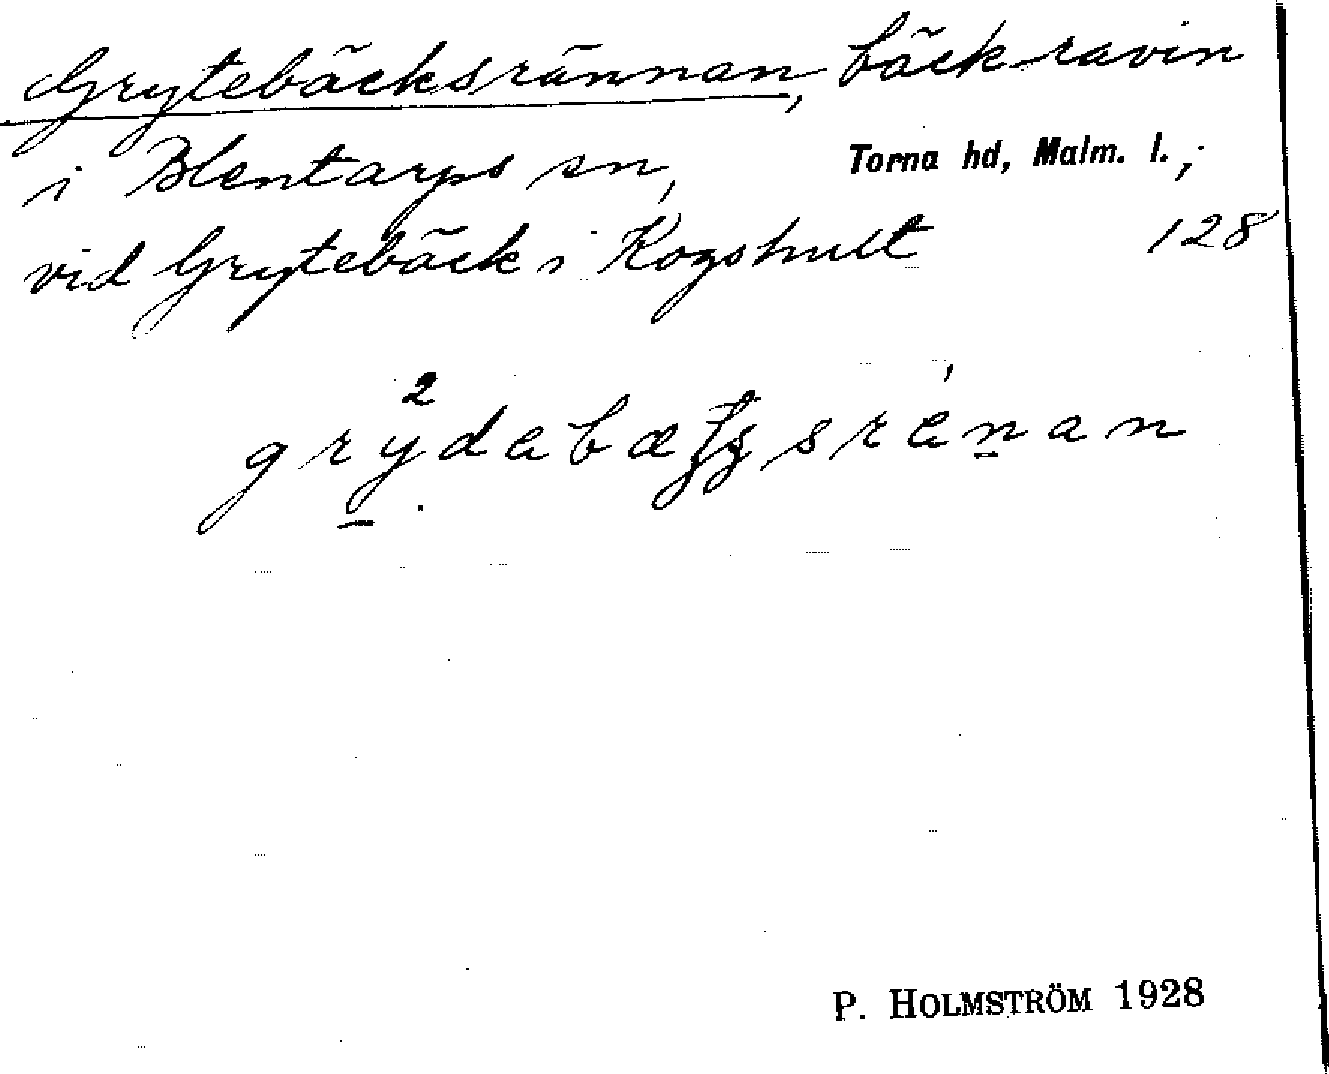 Grytebäcksrännan, bäckravin
i Blentarps sn, Torna hd, Malm. l.,
vid Grytebäck i Kogshult 128
P. HOLMSTRÖM 1928